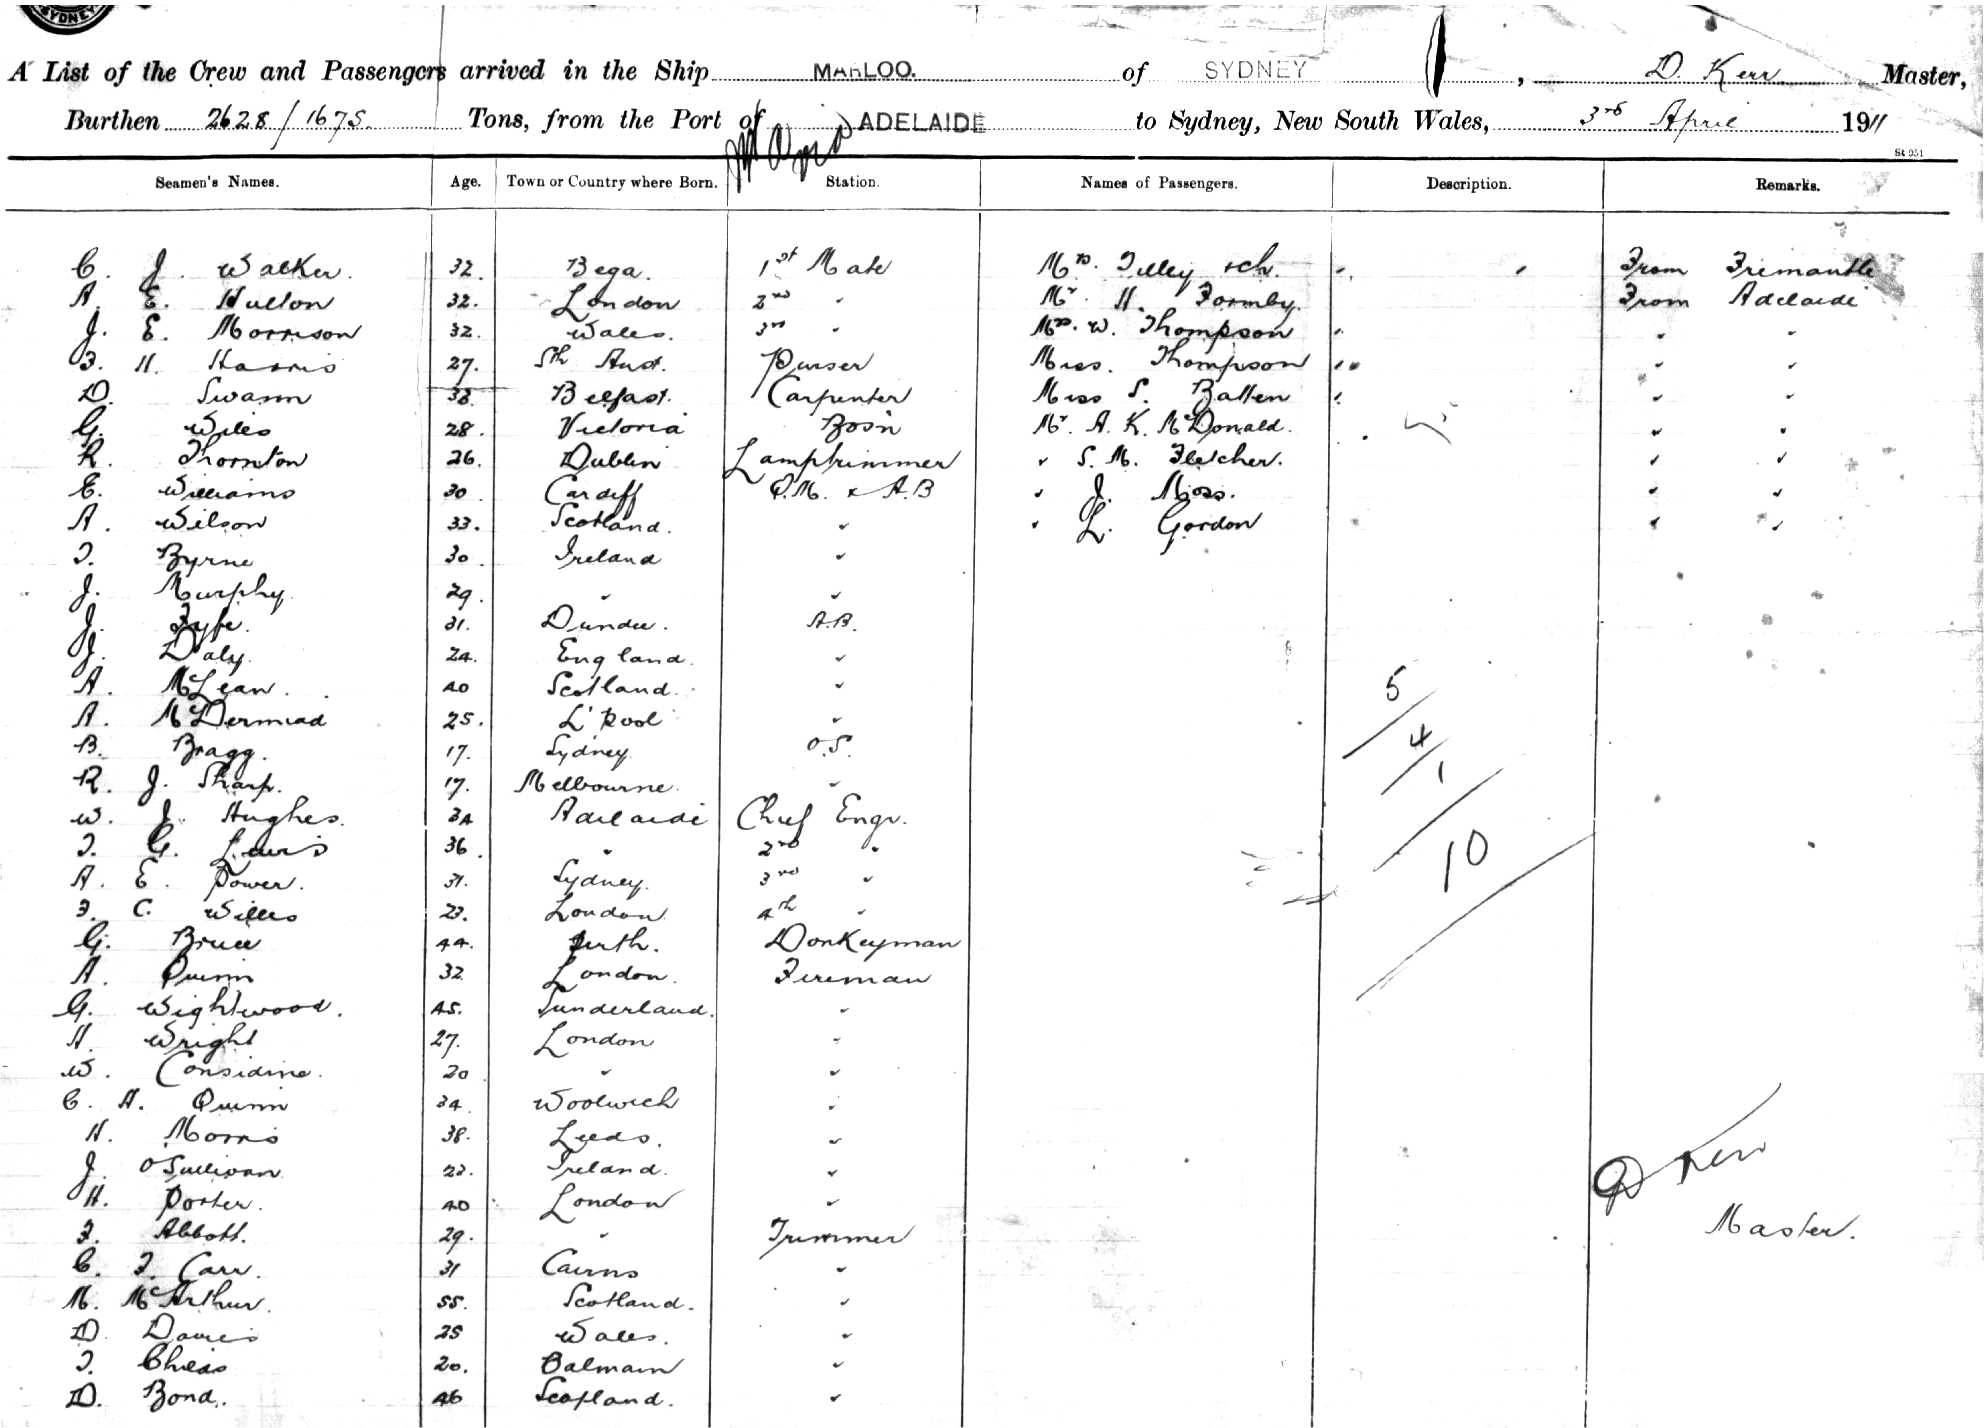 SYDNEY
A List of the Crew and Passengers arrived in the Ship MARLOO. of SYDNEY, D. Kerr Master,
Burthen 2628/1675. Tons, from the Port of ADELAIDE to Sydney, New South Wales, 3rd April 1911
St 951
Seamen's Names. Age. Town or Country where Born. Station. Names of Passengers. Description. Remarks.
C. J. Walker. 32. Bega. 1st Mate Mrs. Tilley & ch. " " From Fremantle
A. E. Hulton 32. London 2nd " Mr. H. Formby. From Adelaide
J. E. Morrison 32. Wales. 3rd " Mrs. W. Thompson " " "
F. H. Harris 27. Sth Aust. Purser Miss. Thompson " " "
D. Swann 38. Belfast. Carpenter Miss S. Batten " " "
G. Wiles 28. Victoria Bosn Mr. A. K. McDonald. " "
R. Thornton 26. Dublin Lamptrimmer " S. M. Fletcher. " "
E. Williams 30 Cardiff Q.M. & A.B " J. Moss. " "
A. Wilson 33. Scotland. " " L. Gordon " "
T. Byrne 30. Ireland "
J. Murphy 29. " "
J. Fyfe. 31. Dundee. A.B.
J. Daly. 24. England. "
A. McLean. 40 Scotland. "
A. McDermiad 25. L'pool "
B. Bragg. 17. Sydney O.S.
R. J. Sharp. 17. Melbourne. "
W. J. Hughes. 34 Adelaide Chief Engr.
T. G. Lewis 36. " 2nd "
A. E. Power. 31. Sydney. 3rd "
F. C. Willis 23. London 4th "
G. Bruce 44. Perth. Donkeyman
A. Quinn 32 London. Fireman
G. Wightwood. 45. Sunderland. "
H. Wright 27. London "
W. Considine. 20 " "
C. H. Quinn 34. Woolwich "
H. Morris 38. Leeds. "
J. O'Sullivan 23. Ireland. "
H. Porter. 40 London "
F. Abbott. 29. " Trimmer
C. F. Carr. 31 Cairns "
M. McArthur. 55. Scotland. "
D. Davies 25 Wales. "
T. Chiess 20. Balmain "
D. Bond. 46 Scotland. "
5
4
1
10
D Kerr
Master.